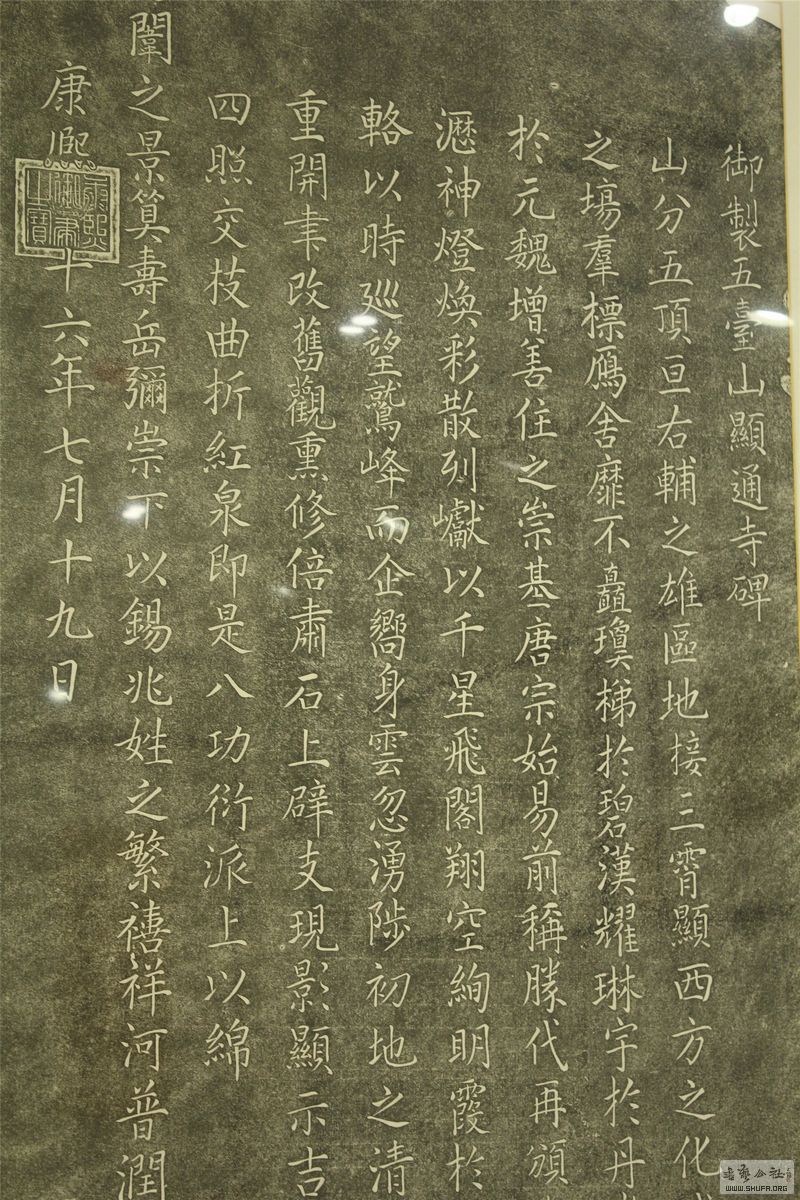 御製五臺山顯通寺碑
山分五頂亘右輔之雄區地接三霄顯西方之化
之塲羣標鴈舍靡不矗瓊梯於碧漢耀琳宇於丹
於元魏增善住之崇基唐宗始易前稱勝代再頒
瀝神燈煥彩散列巘以千星飛閣翔空絢明霞於
輅以時廵望鷲峰而企嚮身雲忽湧陟初地之清
重開聿改舊觀熏修倍肅石上辟支現影顯示吉
四照交技曲折紅泉即是八功衍派上以綿
闈之景算壽岳彌崇下以錫兆姓之繁禧祥河普潤
康熙十六年七月十九日
康熙御筆之寶
WWW.SHUFA.ORG